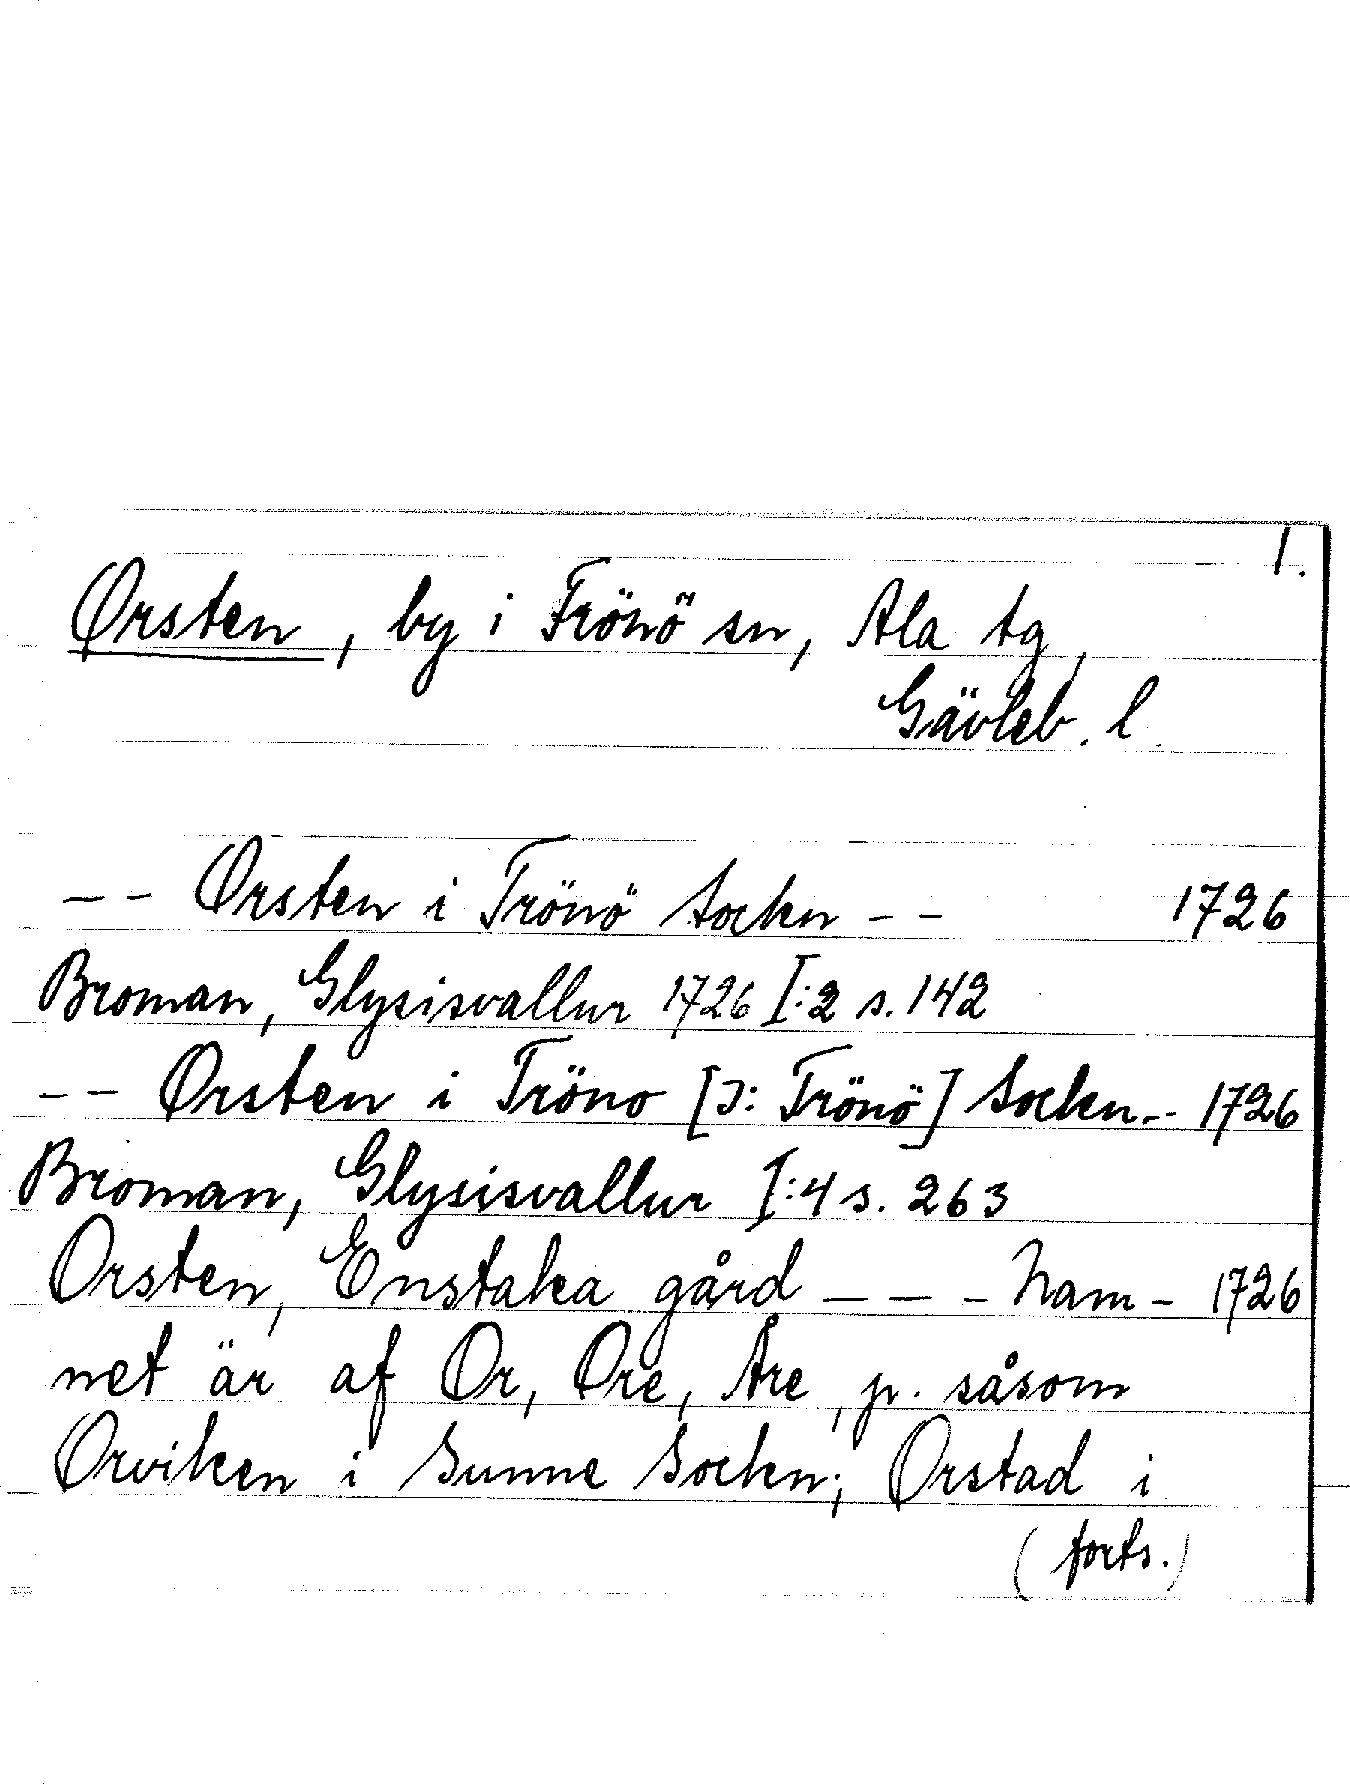 1.
Orsten, by i Trönö sn, Ala tg,
Gävleb. l.
-- Orsten i Trönö Socken -- 1726
Broman, Glysisvallur 1726 I:2 s. 142
-- Orsten i Tröno [ɔ: Trönö] Socken -- 1726
Broman, Glysisvallur I:4 s. 263
Orsten, Enstaka gård --- Nam- 1726
net är af Or, Ore, Åre, p. såsom
Orviken i Sunne Socken; Orstad i
(forts.)